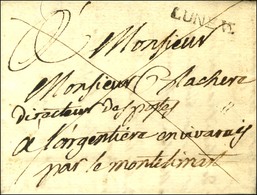 LUNEL
Monsieur
Monsieur Rachere
directeur des postes
a l'argentiere en vivarais
par le montelimar